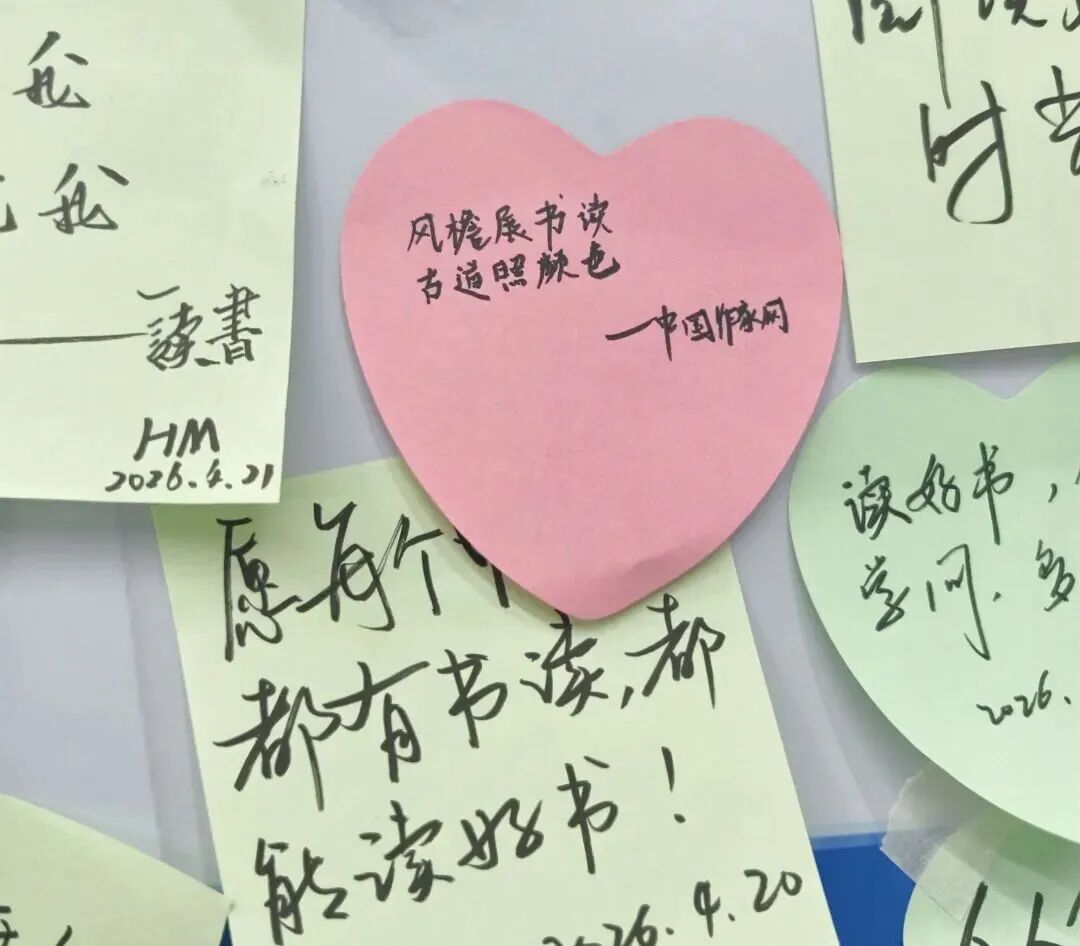 我
我
一读書
HM
2026.4.21
风檐展书读
古道照颜色
—中国作家网
时
愿每个
都有书读,都
能读好书!
2026.4.20
读好书,
学问.多
2026.